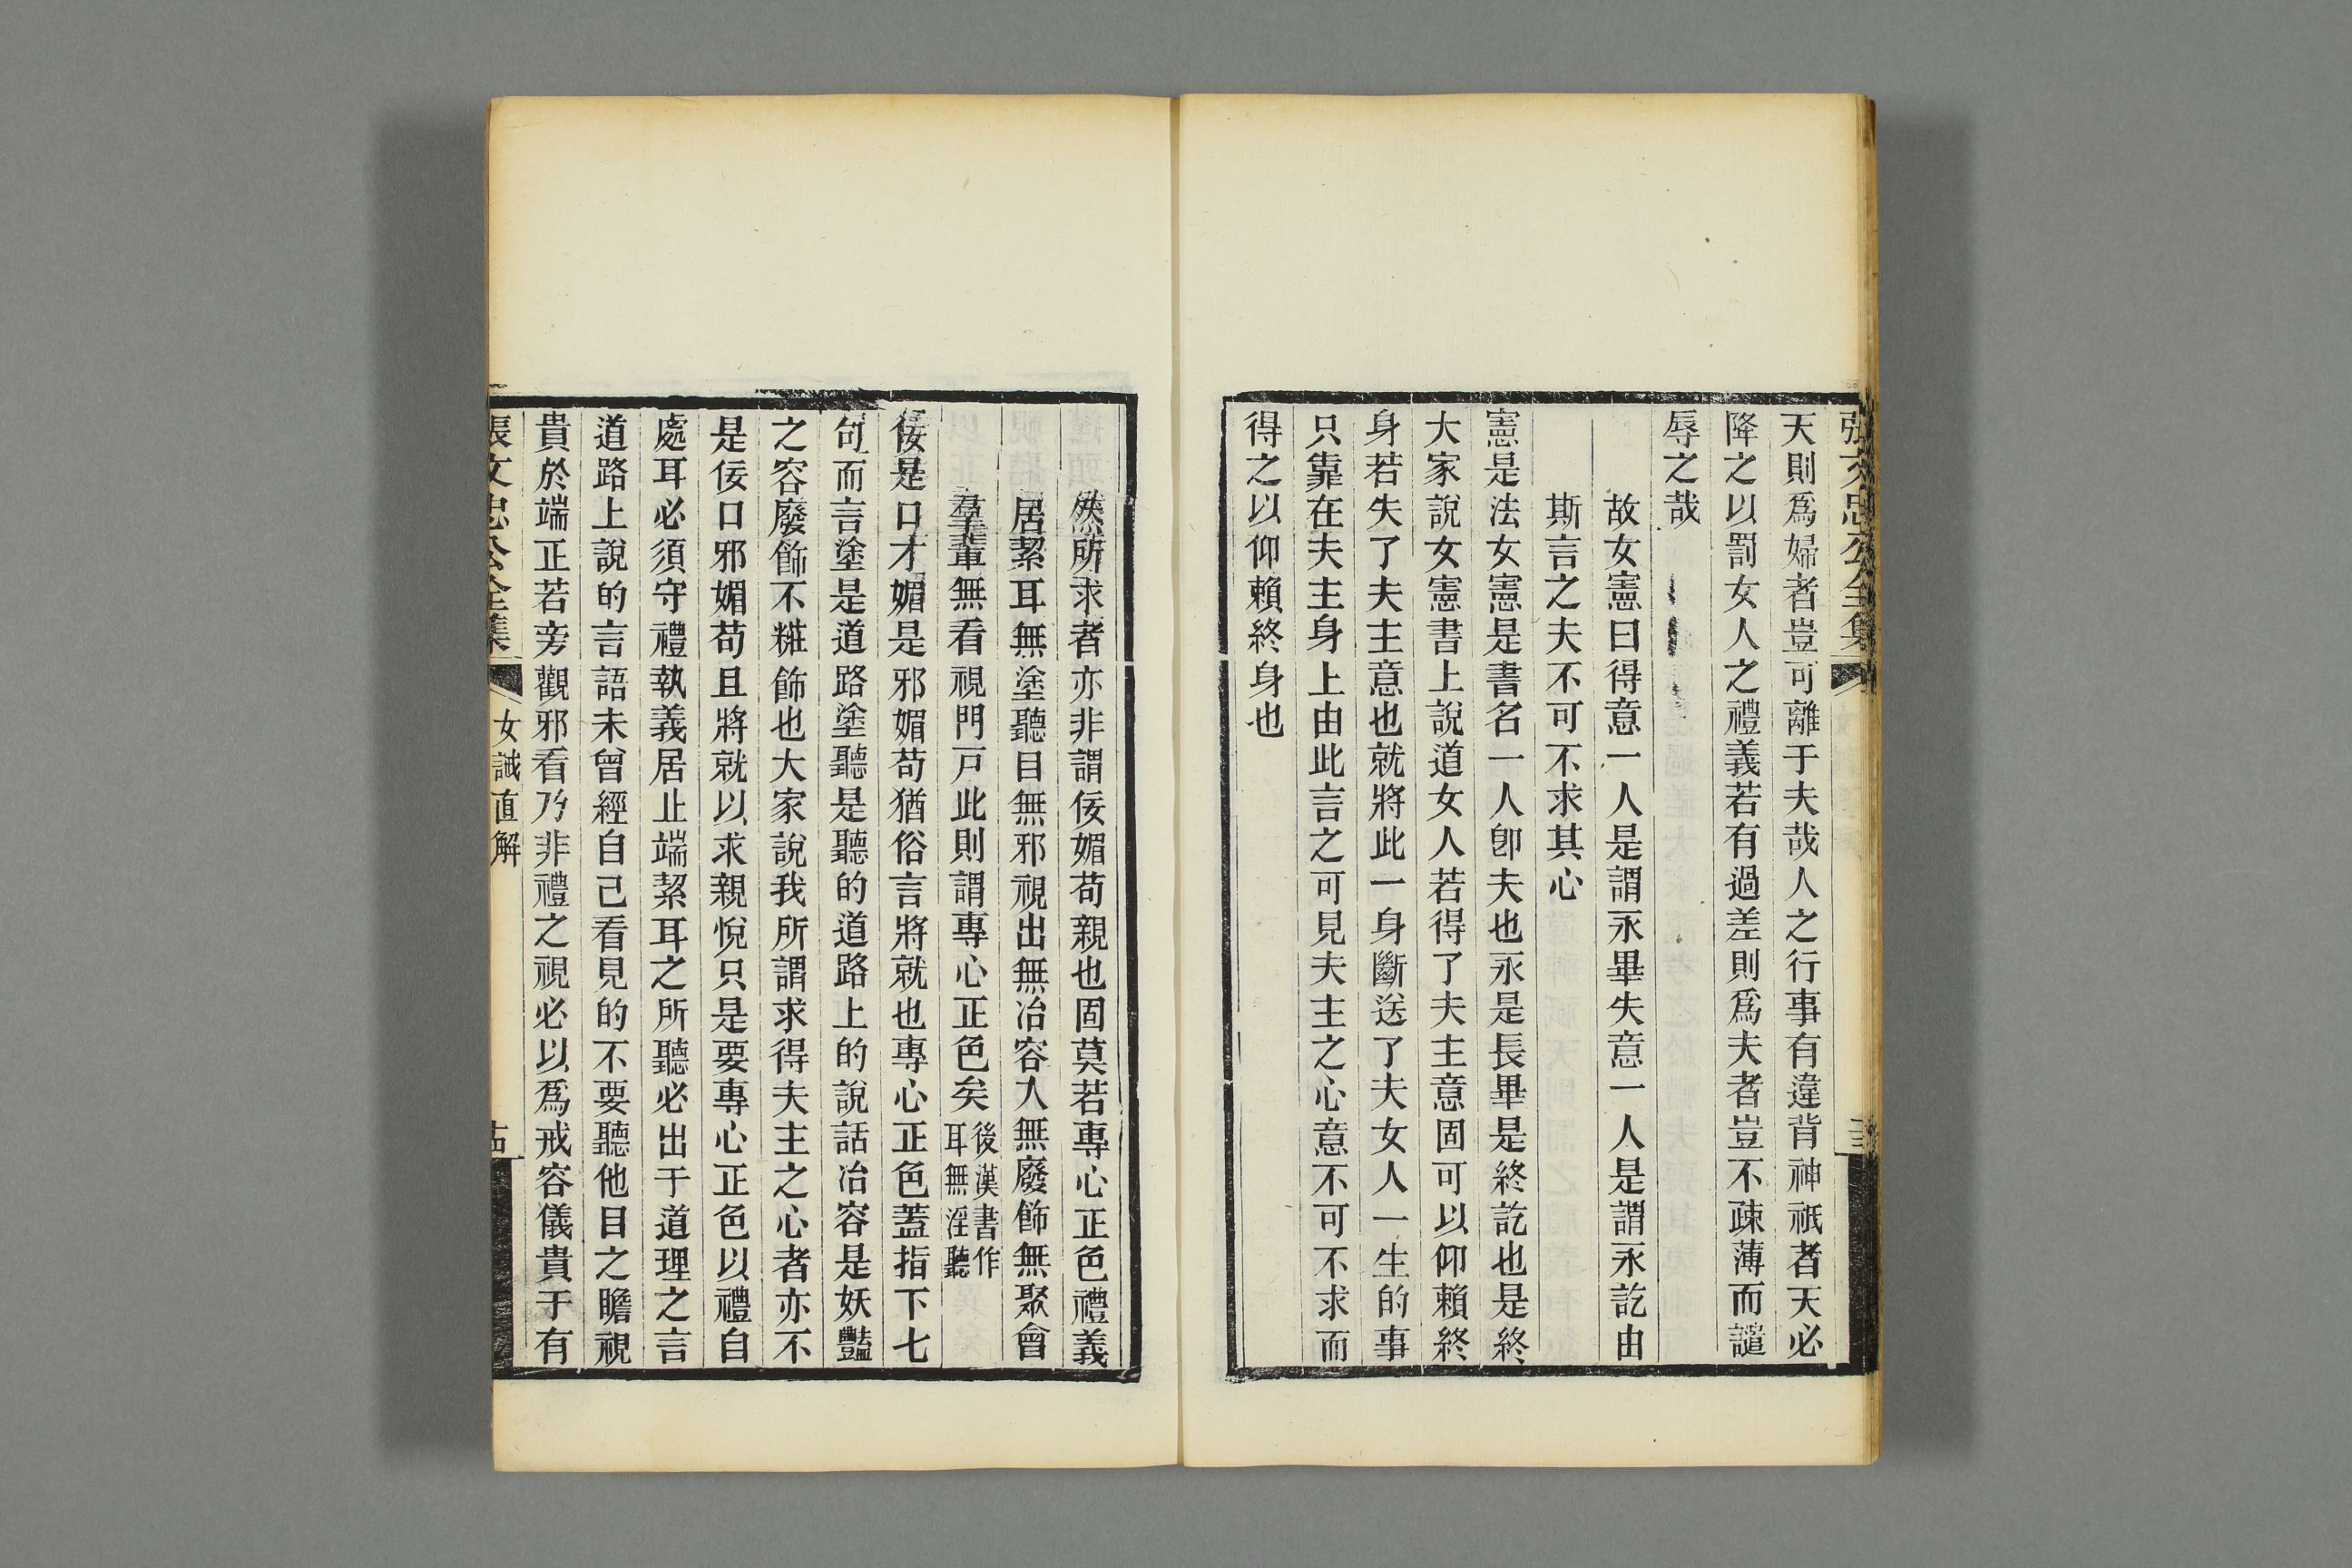 張文忠公全集
天則爲婦者豈可離于夫哉人之行事有違背神祇者天必
降之以罰女人之禮義若有過差則爲夫者豈不疎薄而譴
辱之哉
故女憲曰得意一人是謂永畢失意一人是謂永訖由
斯言之夫不可不求其心
憲是法女憲是書名一人卽夫也永是長畢是終訖也是終
大家說女憲書上說道女人若得了夫主意固可以仰賴終
身若失了夫主意也就將此一身斷送了夫女人一生的事
只靠在夫主身上由此言之可見夫主之心意不可不求而
得之以仰賴終身也
然所求者亦非謂佞媚苟親也固莫若專心正色禮義
居絜耳無塗聽目無邪視出無冶容入無廢飾無聚會
羣輩無看視門戸此則謂專心正色矣後漢書作
耳無淫聽
佞是口才媚是邪媚苟猶俗言將就也專心正色蓋指下七
句而言塗是道路塗聽是聽的道路上的說話冶容是妖豔
之容廢飾不糚飾也大家說我所謂求得夫主之心者亦不
是佞口邪媚苟且將就以求親悅只是要專心正色以禮自
處耳必須守禮執義居止端絜耳之所聽必出于道理之言
道路上說的言語未曾經自己看見的不要聽他目之瞻視
貴於端正若旁觀邪看乃非禮之視必以爲戒容儀貴于有
張文忠公全集
女誡直解
十四